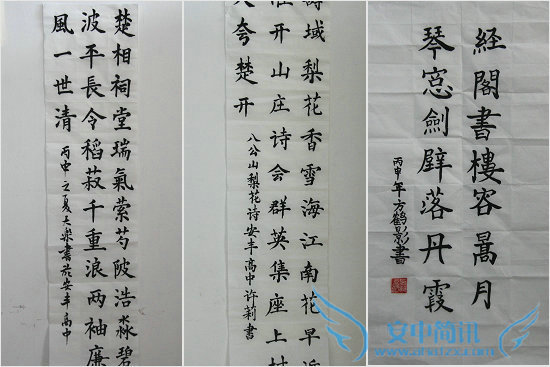 楚相祠堂瑞氣萦芍陂浩淼碧
波平長令稻菽千重浪两袖廉
風一世清
丙申立夏 書於安丰高中
域梨花香雪海江南花早
开山庄诗会群英集座上
夸楚开
八公山梨花诗安丰高中许莉書
経閣書樓容暠月
琴窓劍壁落丹霞
丙申年方鶴影書
安中简讯